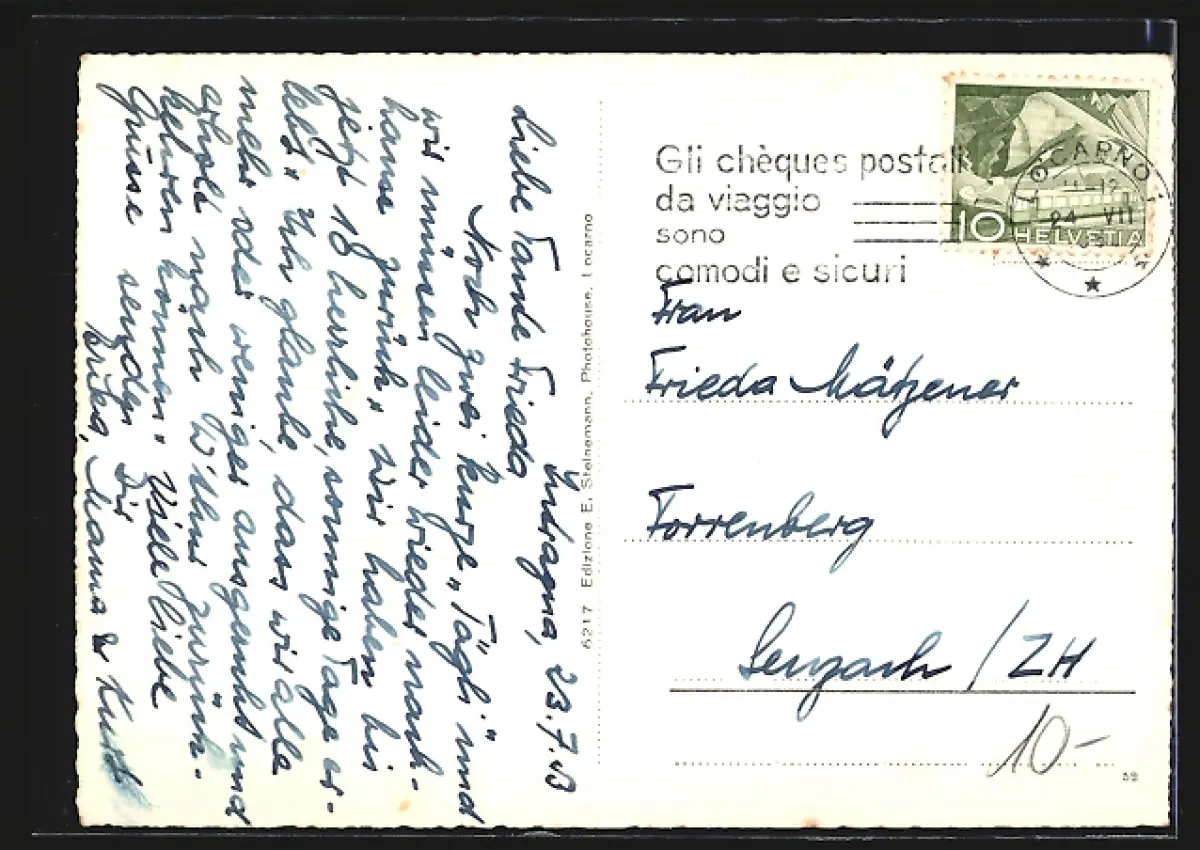 Intragna, 23.7.53
Liebe Tante Frieda
Noch zwei kurze „Tägli" und
wir müssen leider wieder nach-
hause zurück. Wir haben bis
jetzt 18 herrliche, sonnige Tage er-
lebt. Ich glaube, dass wir alle
mehr oder weniger ausgeruht und
erholt nach W'thur zurück-
kehren können. Viele liebe
Grüsse senden Dir
Erika, Mama & Kurt
6217 Edizione E. Steinemann, Photohouse, Locarno
Gli chèques postali
da viaggio
sono
comodi e sicuri
LOCARNO 1
11-12
24 VII
10 HELVETIA
Frau
Frieda Mätzener
Forrenberg
Seuzach / ZH
10-